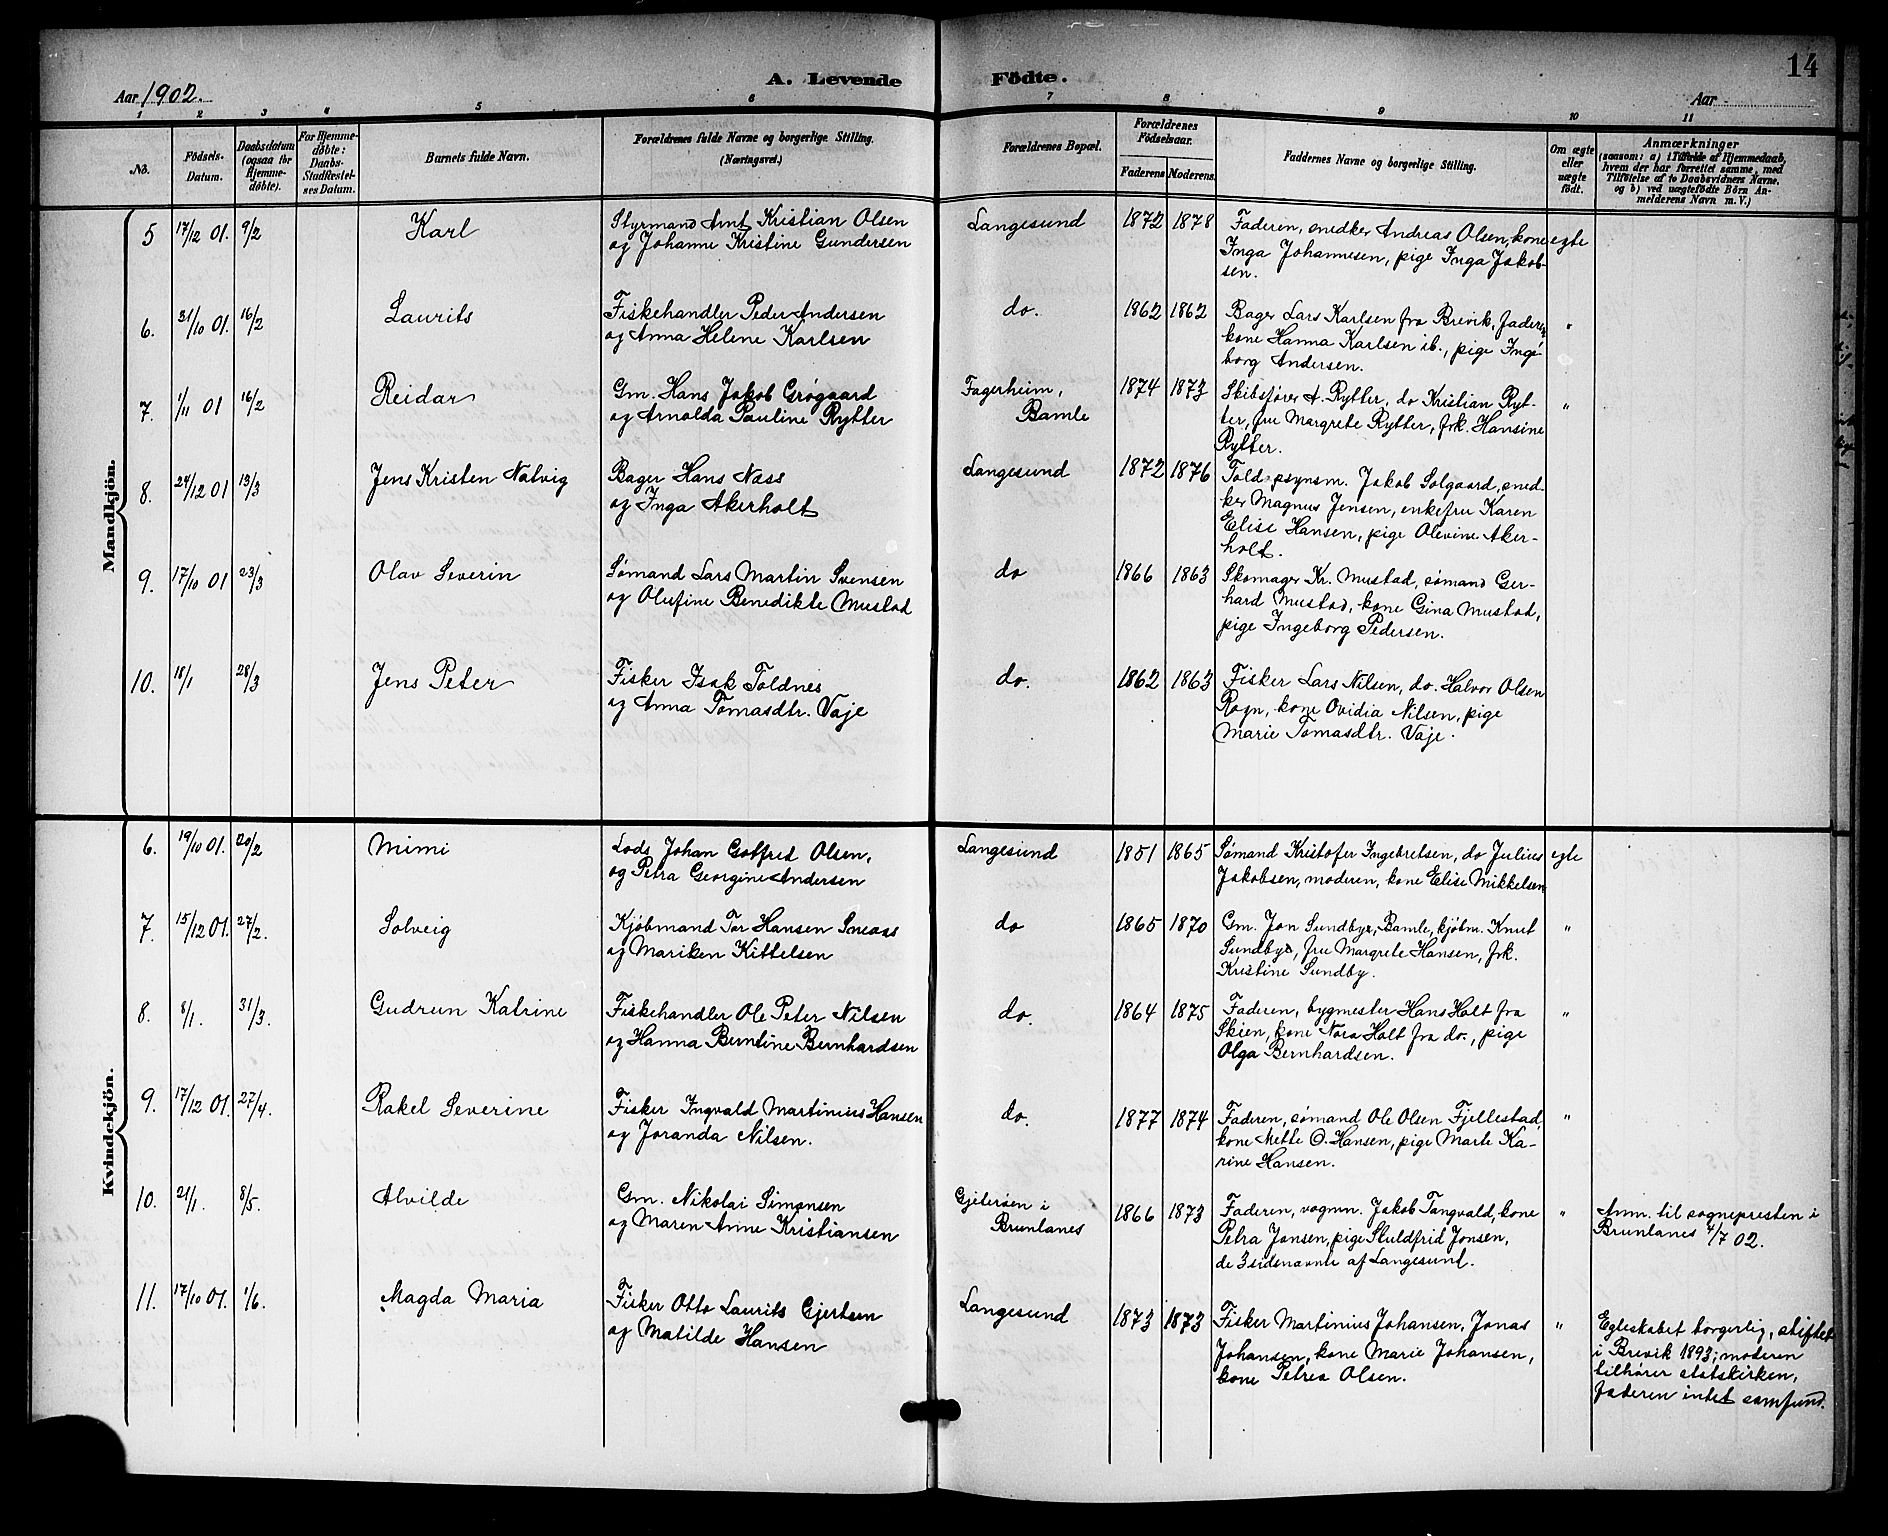 14
A. Levende Födte.
Aar 1902.
Aar
1 2 3 4 5 6 7 8 9 10 11
No.
Födsels-
Datum.
Daabsdatum
(ogsaa for
Hjemme-
døbte).
For Hjemme-
døbte:
Daabs-
Stadfæstel-
ses Datum.
Barnets fulde Navn.
Forældrenes fulde Navne og borgerlige Stilling.
(Næringsvei.)
Forældrenes Bopæl.
Forældrenes
Fødselsaar.
Faderens.
Moderens.
Faddernes Navne og borgerlige Stilling.
Om ægte
eller
uægte
født.
Anmærkninger
(saasom: a) i Tilfælde af Hjemmedaab,
hvem der har forrettet samme, med
Tilføielse af to Daabsvidners Navne,
og b) ved uægtefødte Børn An-
melderens Navn m. V.)
Mandkjön.
5 17/12 01. 9/2 Karl
Styrmand Amt Kristian Olsen
og Johanne Kristine Gundersen
Langesund 1872 1878
Faderen, snedker Andreas Olsen, kone
Inga Johannesen, pige Inga Jakob-
sen.
egte
6. 31/10 01. 16/2 Laurits
Fiskehandler Peder Andersen
og Anna Helene Karlsen
do. 1862 1862
Bager Lars Karlsen fra Brevik, faderen,
kone Hanna Karlsen ib., pige Inge-
borg Andersen.
"
7. 1/11 01 16/2 Reidar
Gm. Hans Jakob Grøgaard
og Arnolda Pauline Rytter
Fagerheim,
Bamle
1874 1873
Skibsfører A. Rytter, do Kristian Ryt-
ter, fru Margrete Rytter, frk. Hansine
Rytter.
"
8. 24/12 01 13/3 Jens Kristen Natvig
Bager Hans Næss
og Inga Akerholt
Langesund 1872 1876
Toldopsynsm. Jakob Solgaard, sned-
ker Magnus Jensen, enkefru Karen
Elise Hansen, pige Olevine Aker-
holt.
9. 17/10 01 23/3 Olav Severin
Sømand Lars Martin Svensen
og Olufine Benedikte Mustad
do 1866 1863
Skomager Kr. Mustad, sømand Ger-
hard Mustad, kone Gina Mustad,
pige Ingeborg Pedersen.
10. 18/1 28/3 Jens Peter
Fisker Isak Toldnes
og Anna Tomasdtr. Vaje
do. 1862 1863
Fisker Lars Nilsen, do. Halvor Olsen
Rogn, kone Ovidia Nilsen, pige
Marie Tomasdtr. Vaje.
Kvindekjön.
6. 19/10 01. 20/2 Mimi
Lods Johan Gotfred Olsen,
og Petra Georgine Andersen
Langesund 1851 1865
Sømand Kristofer Ingebretsen, do Julius
Jakobsen, moderen, kone Elise Mikkelsen
egte
7. 15/12 01. 27/2. Solveig
Kjøbmand Tor Hansen Sneaas
og Mariken Kittelsen
do 1865 1870
Gm. Jon Sundby, Bamle, kjøbm. Knut
Sundby, fru Margrete Hansen, frk.
Kristine Sundby.
"
8. 8/1. 31/3. Gudrun Katrine
Fiskehandler Ole Peter Nilsen
og Hanna Berntine Bernhardsen
do. 1864 1875
Faderen, bygmester Hans Holt fra
Skien, kone Nora Holt fra do., pige
Olga Bernhardsen.
"
9. 17/12 01. 27/4. Rakel Severine
Fisker Ingvald Martinius Hansen
og Joranda Nilsen.
do. 1877 1874
Faderen, sømand Ole Olsen Fjellestad,
kone Mette O. Hansen, pige Marte Ka-
rine Hansen.
"
10. 21/1. 8/5. Alvilde
Gm. Nikolai Simonsen
og Maren Anne Kristiansen
Gjetersen i
Brunlanes
1866 1873
Faderen, vognm. Jakob Tangvald, kone
Petra Jonsen, pige Skuldfrid Jonsen,
de 3 sidsnævnte af Langesund.
"
Anm. til sognepresten i
Brunlanes 4/7 02.
11. 17/10 01. 1/6. Magda Maria
Fisker Otto Laurits Gjertsen
og Matilde Hansen
Langesund 1873 1873
Fisker Martinius Johansen, Jonas
Johansen, kone Marie Johansen,
kone Petrea Olsen.
"
Egteskabet borgerlig, stiftet
i Brevik 1893; moderen
tilhører statskirken,
faderen intet samfund.